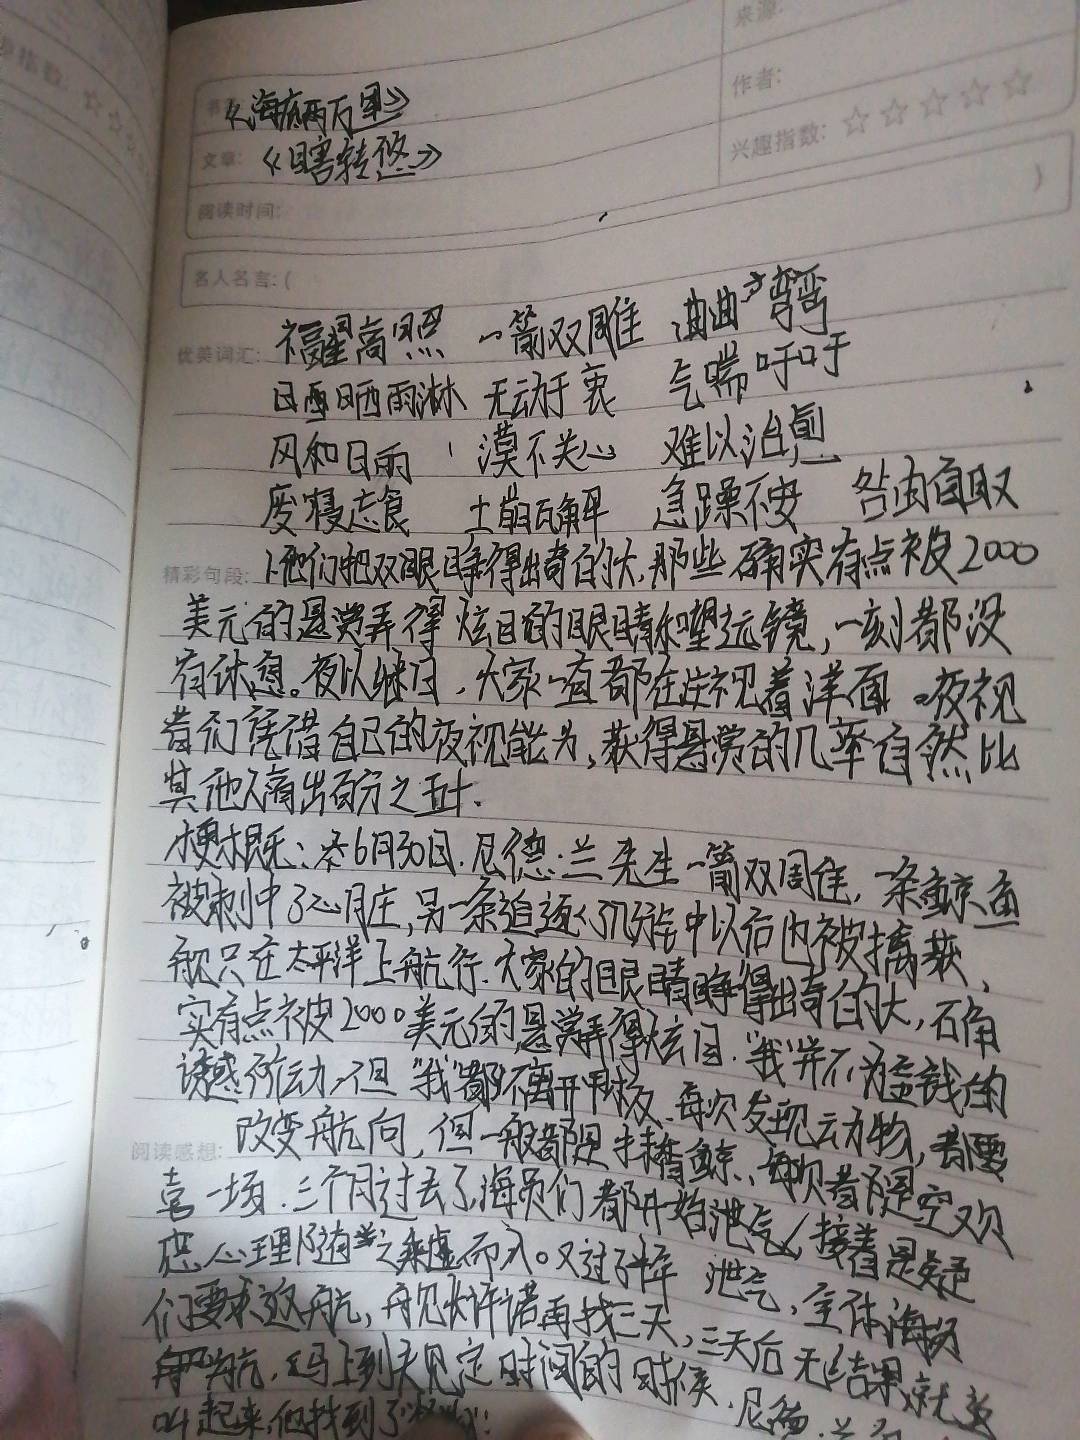 步指数: ☆☆☆
来源:
《海底两万里》
作者:
文章: 《瞎转悠》
兴趣指数: ☆☆☆☆☆
阅读时间:
)
名人名言: (
优美词汇: 福星高照 一箭双雕 曲曲弯弯
日晒雨淋 无动于衷 气喘吁吁
风和日雨 漠不关心 难以治愈
废寝忘食 土崩瓦解 急躁不安 咎由自取
精彩句段: 1、他们把双眼睁得出奇的大,那些 确实有点被2000
美元的悬赏弄得炫目的眼睛和望远镜,一刻都没
有休息。夜以继日,大家一直都在注视着洋面。夜视
者们凭借自己的夜视能力,获得悬赏的几率自然比
其他人高出百分之五十.
梗概:本6月30日.尼德.兰先生一箭双雕,一条鲸鱼
被刺中了心脏,另一条追逐了几分钟以后也被擒获,
船只在太平洋上航行.大家的眼睛睁得出奇的大,确
实有点被2000美元的悬赏弄得炫目."我"并不为金钱的
诱惑所动,但"我"都不离开甲板、每次发现动物,都要
阅读感想: 改变航向,但一般都是长须鲸、每次都是空欢
喜一场.三个月过去了,海员们都开始泄气,接着是疑
心理随之乘虚而入。又过了 泄气,全体海
们要求返航,船长许诺再找三天,三天后无结果,就
返航.马上到规定时间的时候,尼德.兰
叫起来,他找到了